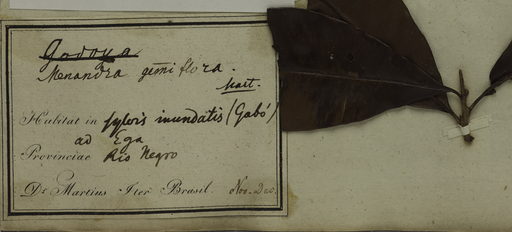 Godoya
Menandra gemiflora.
Mart.
Habitat in sylvis inundatis (Gabó)
ad Ega
Provinciae Rio Negro
Dr. Martius Iter Brasil. Nov. Dec.